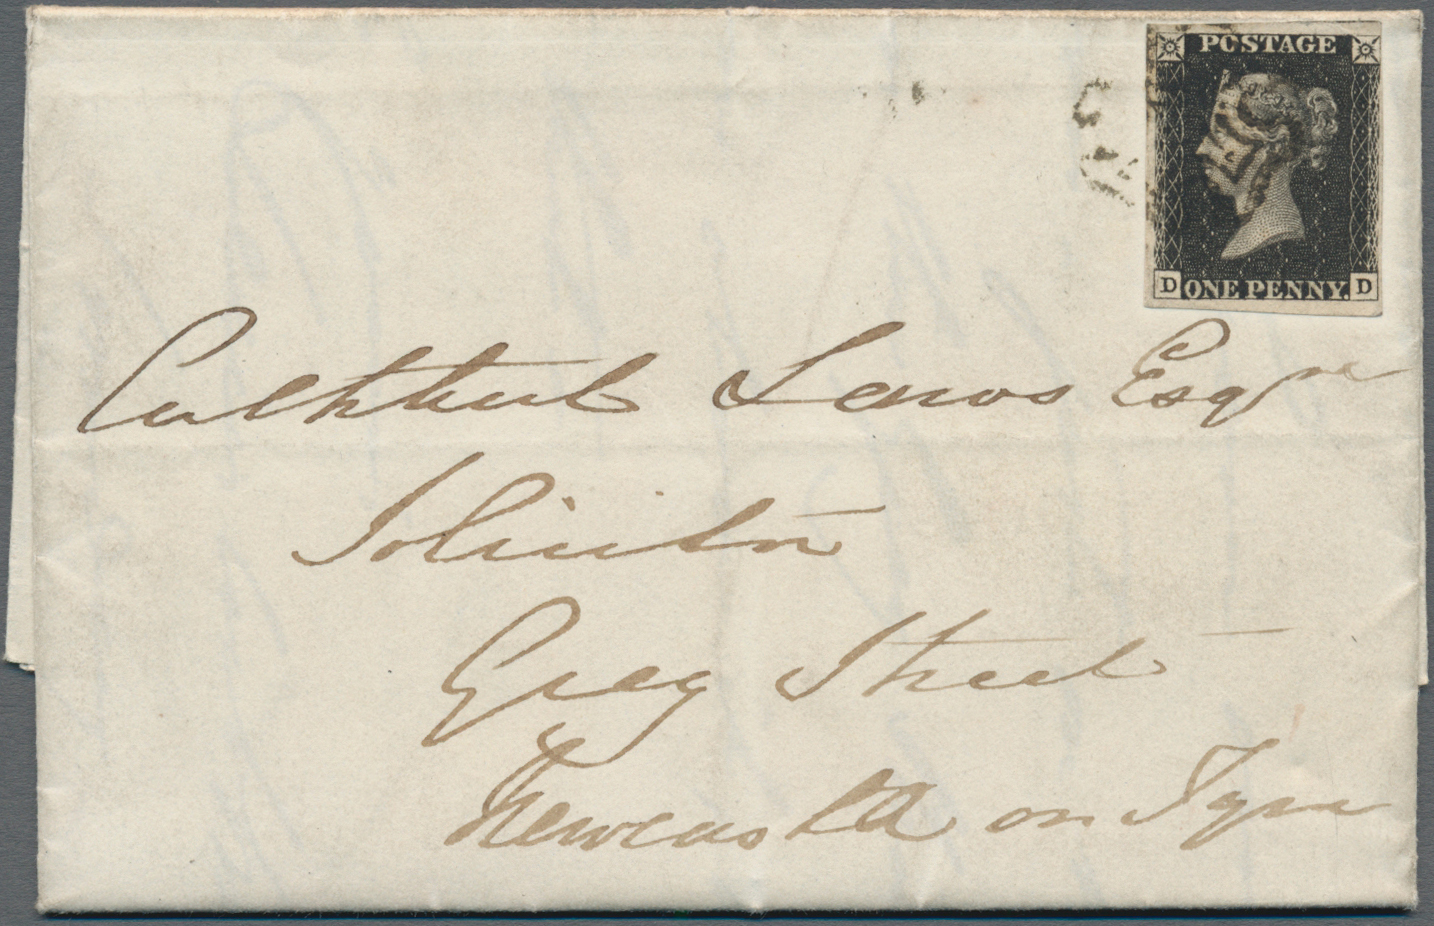 POSTAGE
D ONE PENNY. D
Cuthbert Esqre
Solicitor
Grey Street
Newcastle on Tyne